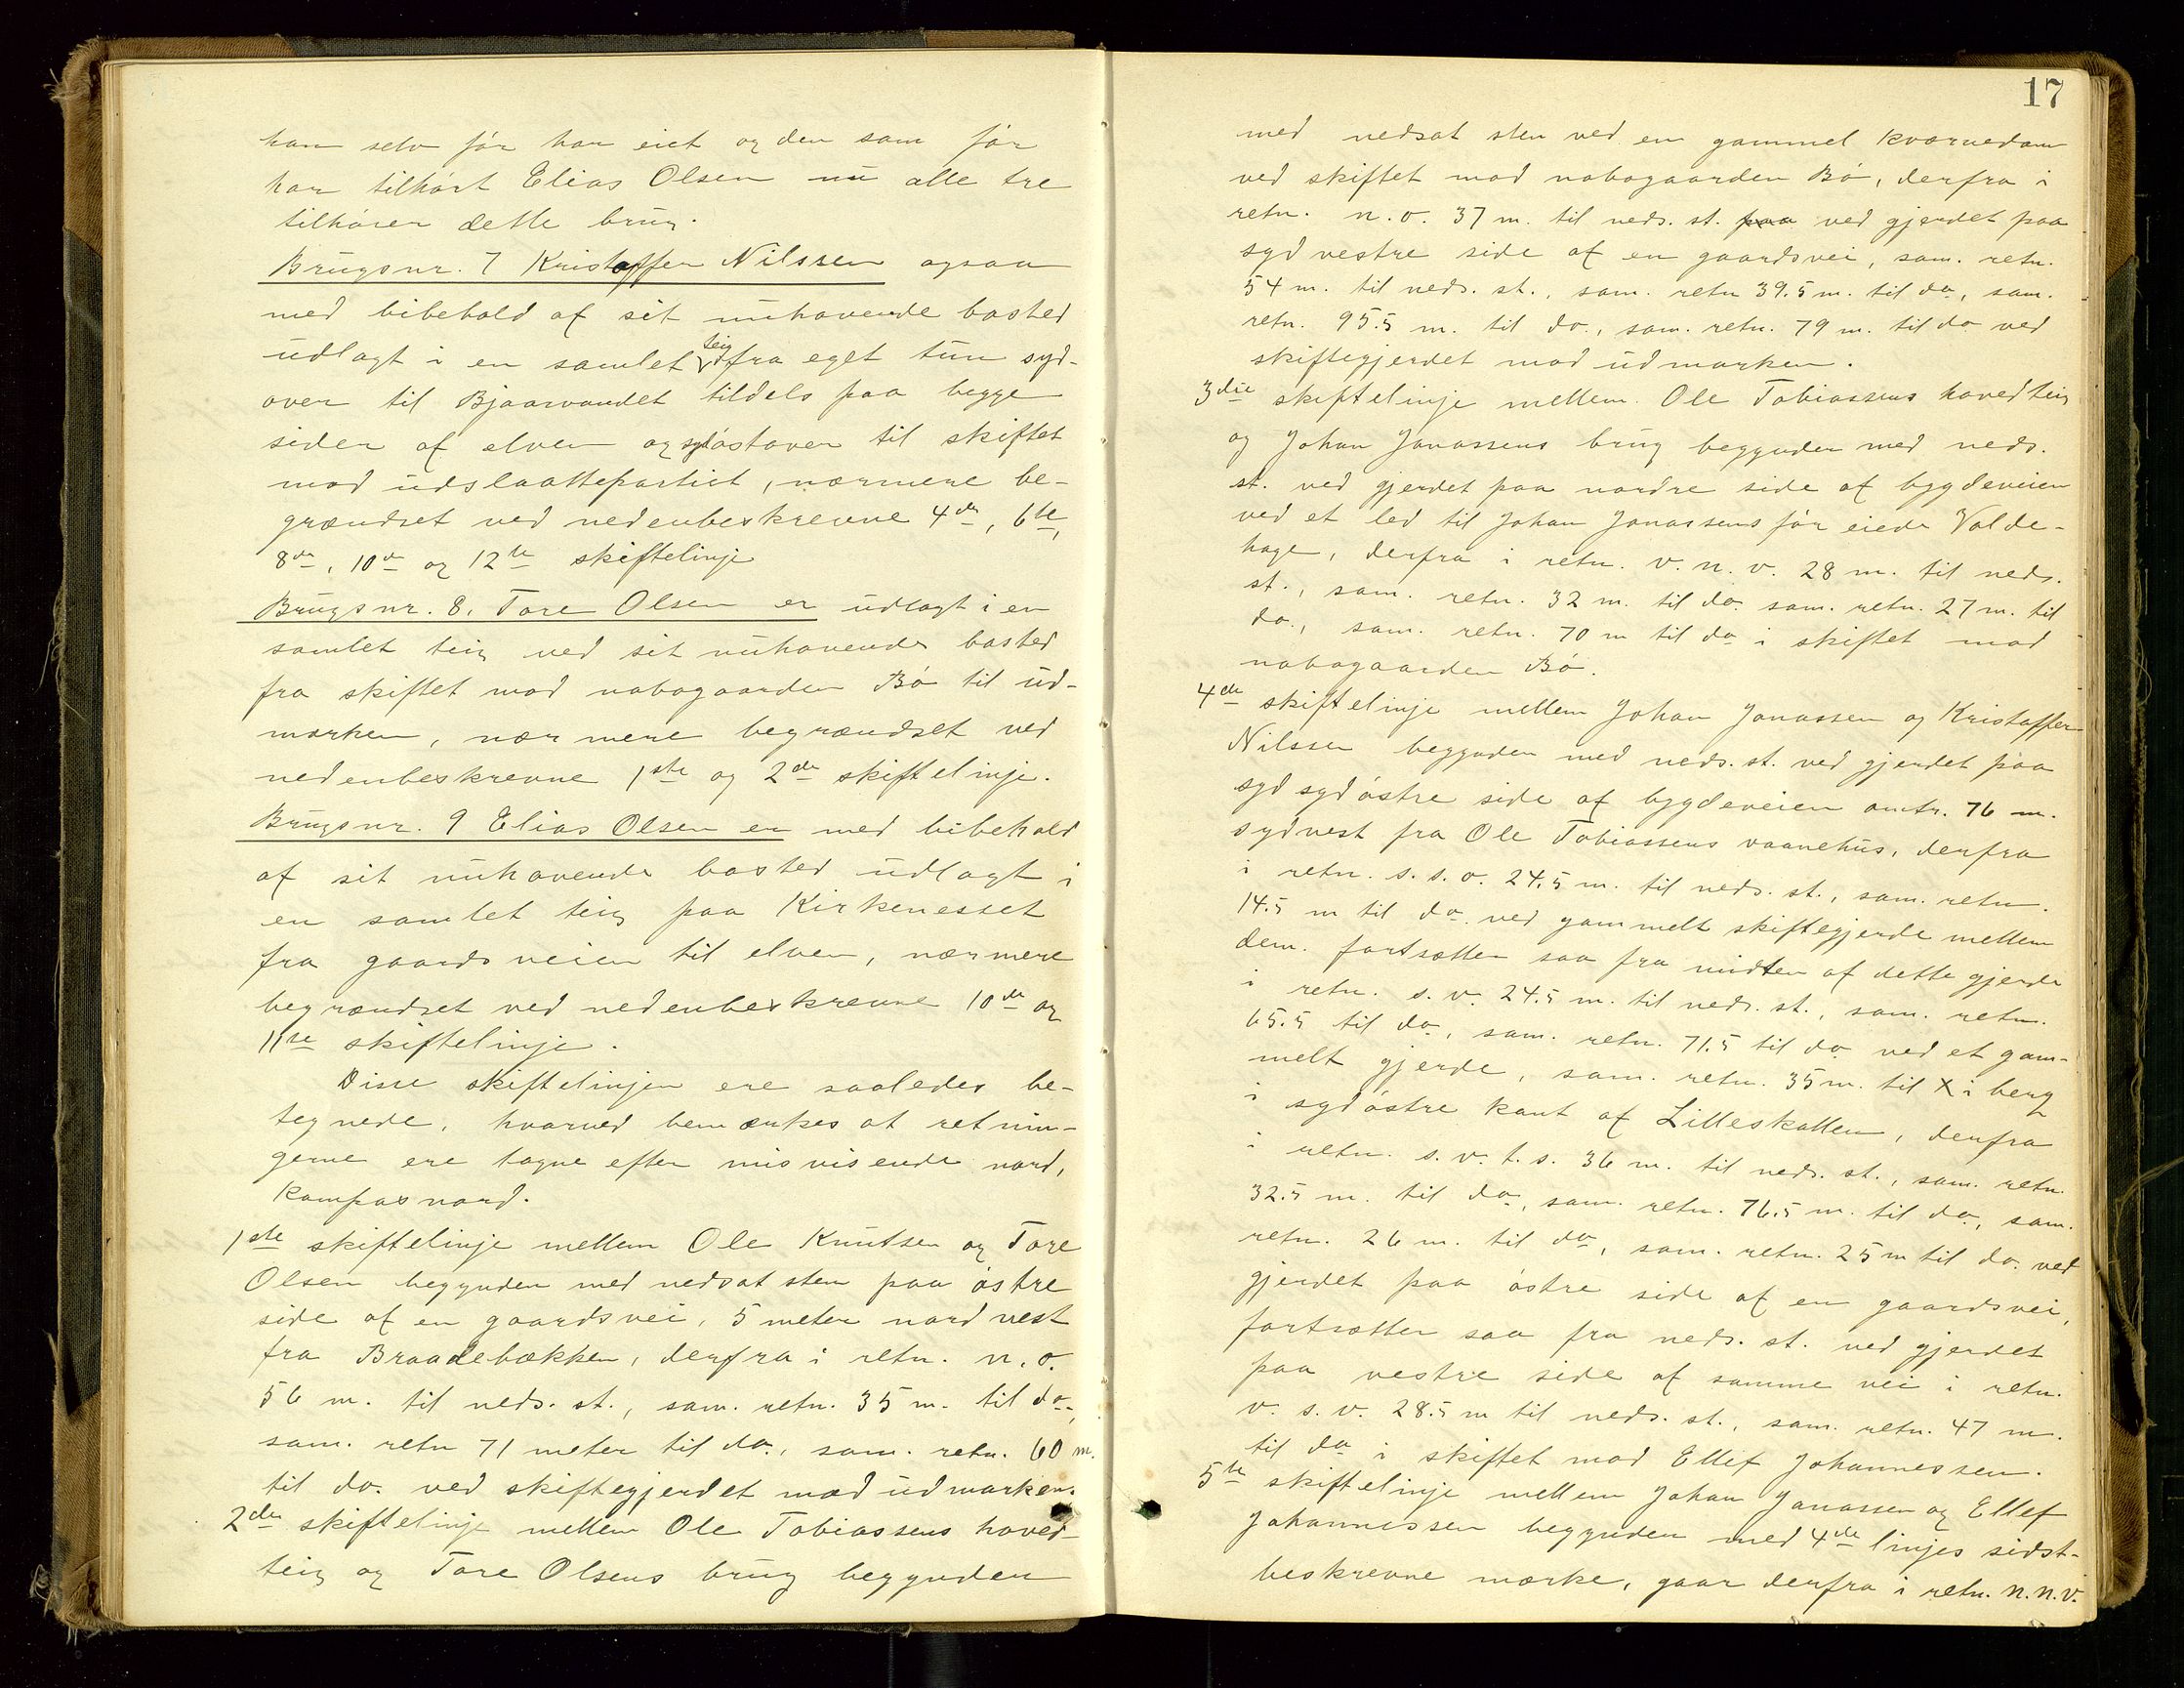 han selv før har eiet og den som før
har tilhørt Elias Olsen nu alle tre
tilhører dette brug.
Brugsnr. 7 Kristoffer Nilssen ogsaa
med bibehold af sit nuhavende bosted
udlagt i en samlet teig fra eget tun syd-
over til Bjaavandet tildels paa begge
sider af elven og sydostover til skiftet
mod udslaattepartiet, nærmere be-
grændset ved nedenbeskrevne 4de, 6te,
8de, 10de og 12te skiftelinje
Brugsnr. 8. Tore Olsen er udlagt i en
samlet teig ved sit nuhavende bosted
fra skiftet mod nabogaarden Bø til ud-
marken, nærmere begrændset ved
nedenbeskrevne 1ste og 2de skiftelinje.
Brugsnr. 9 Elias Olsen er med bibehold
af sit nuhavende bosted udlagt i
en samlet teig paa Kirkenesset
fra gaardsveien til elven, nærmere
begrændset ved nedenbeskrevne 10de og
11te skiftelinje.
Disse skiftelinjer ere saaledes be-
tegnede, hvorved bemærkes at retnin-
gerne ere tagne efter misvisende nord,
kompasnord.
1ste skiftelinje mellem Ole Knutsen og Tore
Olsen begynder med nedsat sten paa østre
side af en gaardsvei, 5 meter nordvest
fra Braadebækken, derfra i retn. n. o.
56 m. til neds. st., sam. retn. 35 m. til do.,
sam. retn 71 meter til do., sam. retn. 60 m.
til do. ved skiftegjerdet mod udmarken.
2den skiftelinje mellem Ole Tobiassens hoved-
teig og Tore Olsens brug begynder
17
med nedsat sten ved en gammel kværnedam
ved skiftet mod nabogaarden Bø, derfra i
retn. n. o. 37 m. til neds. st. paa ved gjerdet paa
sydvestre side af en gaardsvei, sam. retn.
54 m. til neds. st., sam. retn 39.5 m. til do, sam.
retn. 95.5 m. til do., sam. retn. 79 m. til do ved
skiftegjerdet mod udmarken.
3die skiftelinje mellem Ole Tobiassens hovedteig
og Johan Jonassens brug begynder med neds.
st. ved gjerdet paa nordre side af bygdeveien
ved et led til Johan Jonassens før eiede Volde-
hage, derfra i retn. v. n. v. 28 m. til neds.
st., sam. retn. 32 m. til do. sam. retn. 27 m. til
do., sam. retn. 70 m til do i skiftet mod
nabogaarden Bø.
4de skiftelinje mellem Johan Jonassen og Kristoffer
Nilssen begynder med neds. st. ved gjerdet paa
syd sydøstre side af bygdeveien omtr. 76 m.
sydvest fra Ole Tobiassens vaanehus, derfra
i retn. s. s. o. 24.5 m. til neds. st., sam. retn.
14.5 m til do. ved gammelt skiftegjerde mellem
dem. fortsætter saa fra midten af dette gjerde
i retn. s. v. 24.5 m. til neds. st., sam. retn.
65.5 til do, sam. retn. 71.5 til do ved et gam-
melt gjerde, sam. retn. 35 m. til X i berg
i sydøstre kant af Lilleskotten, derfra
i retn. s. v. t. s. 36 m. til neds. st., sam. retn.
32.5 m. til do, sam. retn. 76.5 m. til do, sam.
retn. 26 m. til do, sam. retn. 25 m til do. ved
gjerdet paa østre side af en gaardsvei,
fortsætter saa fra neds. st. ved gjerdet
paa vestre side af samme vei i retn.
v. s. v. 28.5 m til neds. st., sam. retn. 47 m.
til do i skiftet mod Ellef Johannessen.
5te skiftelinje mellem Johan Jonassen og Ellef
Johannessen begynder med 4de linjes sidst-
beskrevne mærke, gaar derfra i retn. n. n. v.